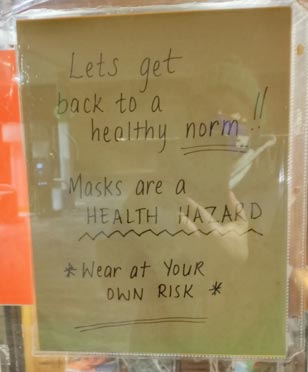 Lets get
back to a
healthy norm!!
Masks are a
HEALTH HAZARD
*Wear at YOUR
OWN RISK *